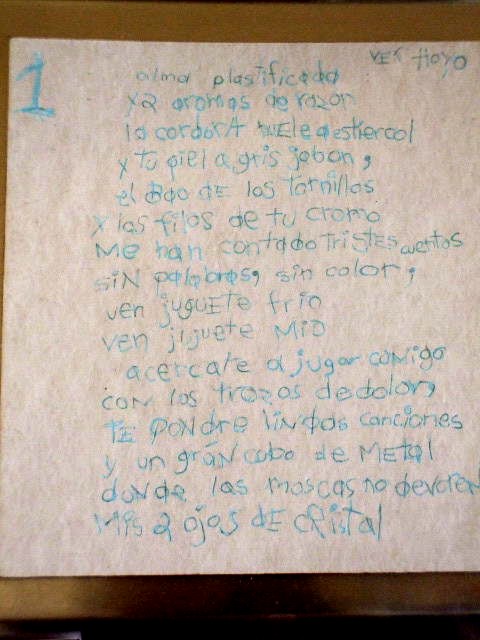 1
VER tioyo
alma plastificada
y 2 aromas de razon
la cordorA HuEle a estiercol
y tu piel a gris jabon,
el Bao DE los tornillos
y las filos de tu cromo
Me han contado TRisTES cuentos
siN palabras, sin color,
ven juguETE frio
ven juguete Mio
acercate a jugar coNMigo
coN los trozos de dolor,
TE poNdre liNdas canciones
y un gráN cubo de METal
doNde las moscas no devoren
Mis 2 ojos dE cRistal